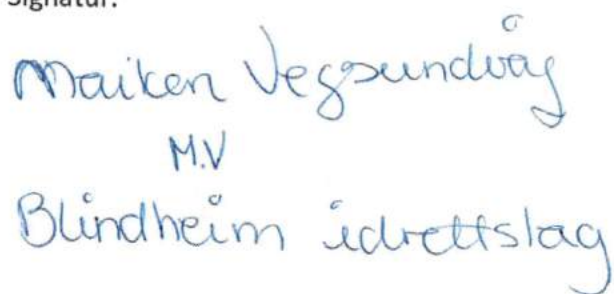 Signatur:
Maiken Vegsundvåg
M.V
Blindheim idrettslag